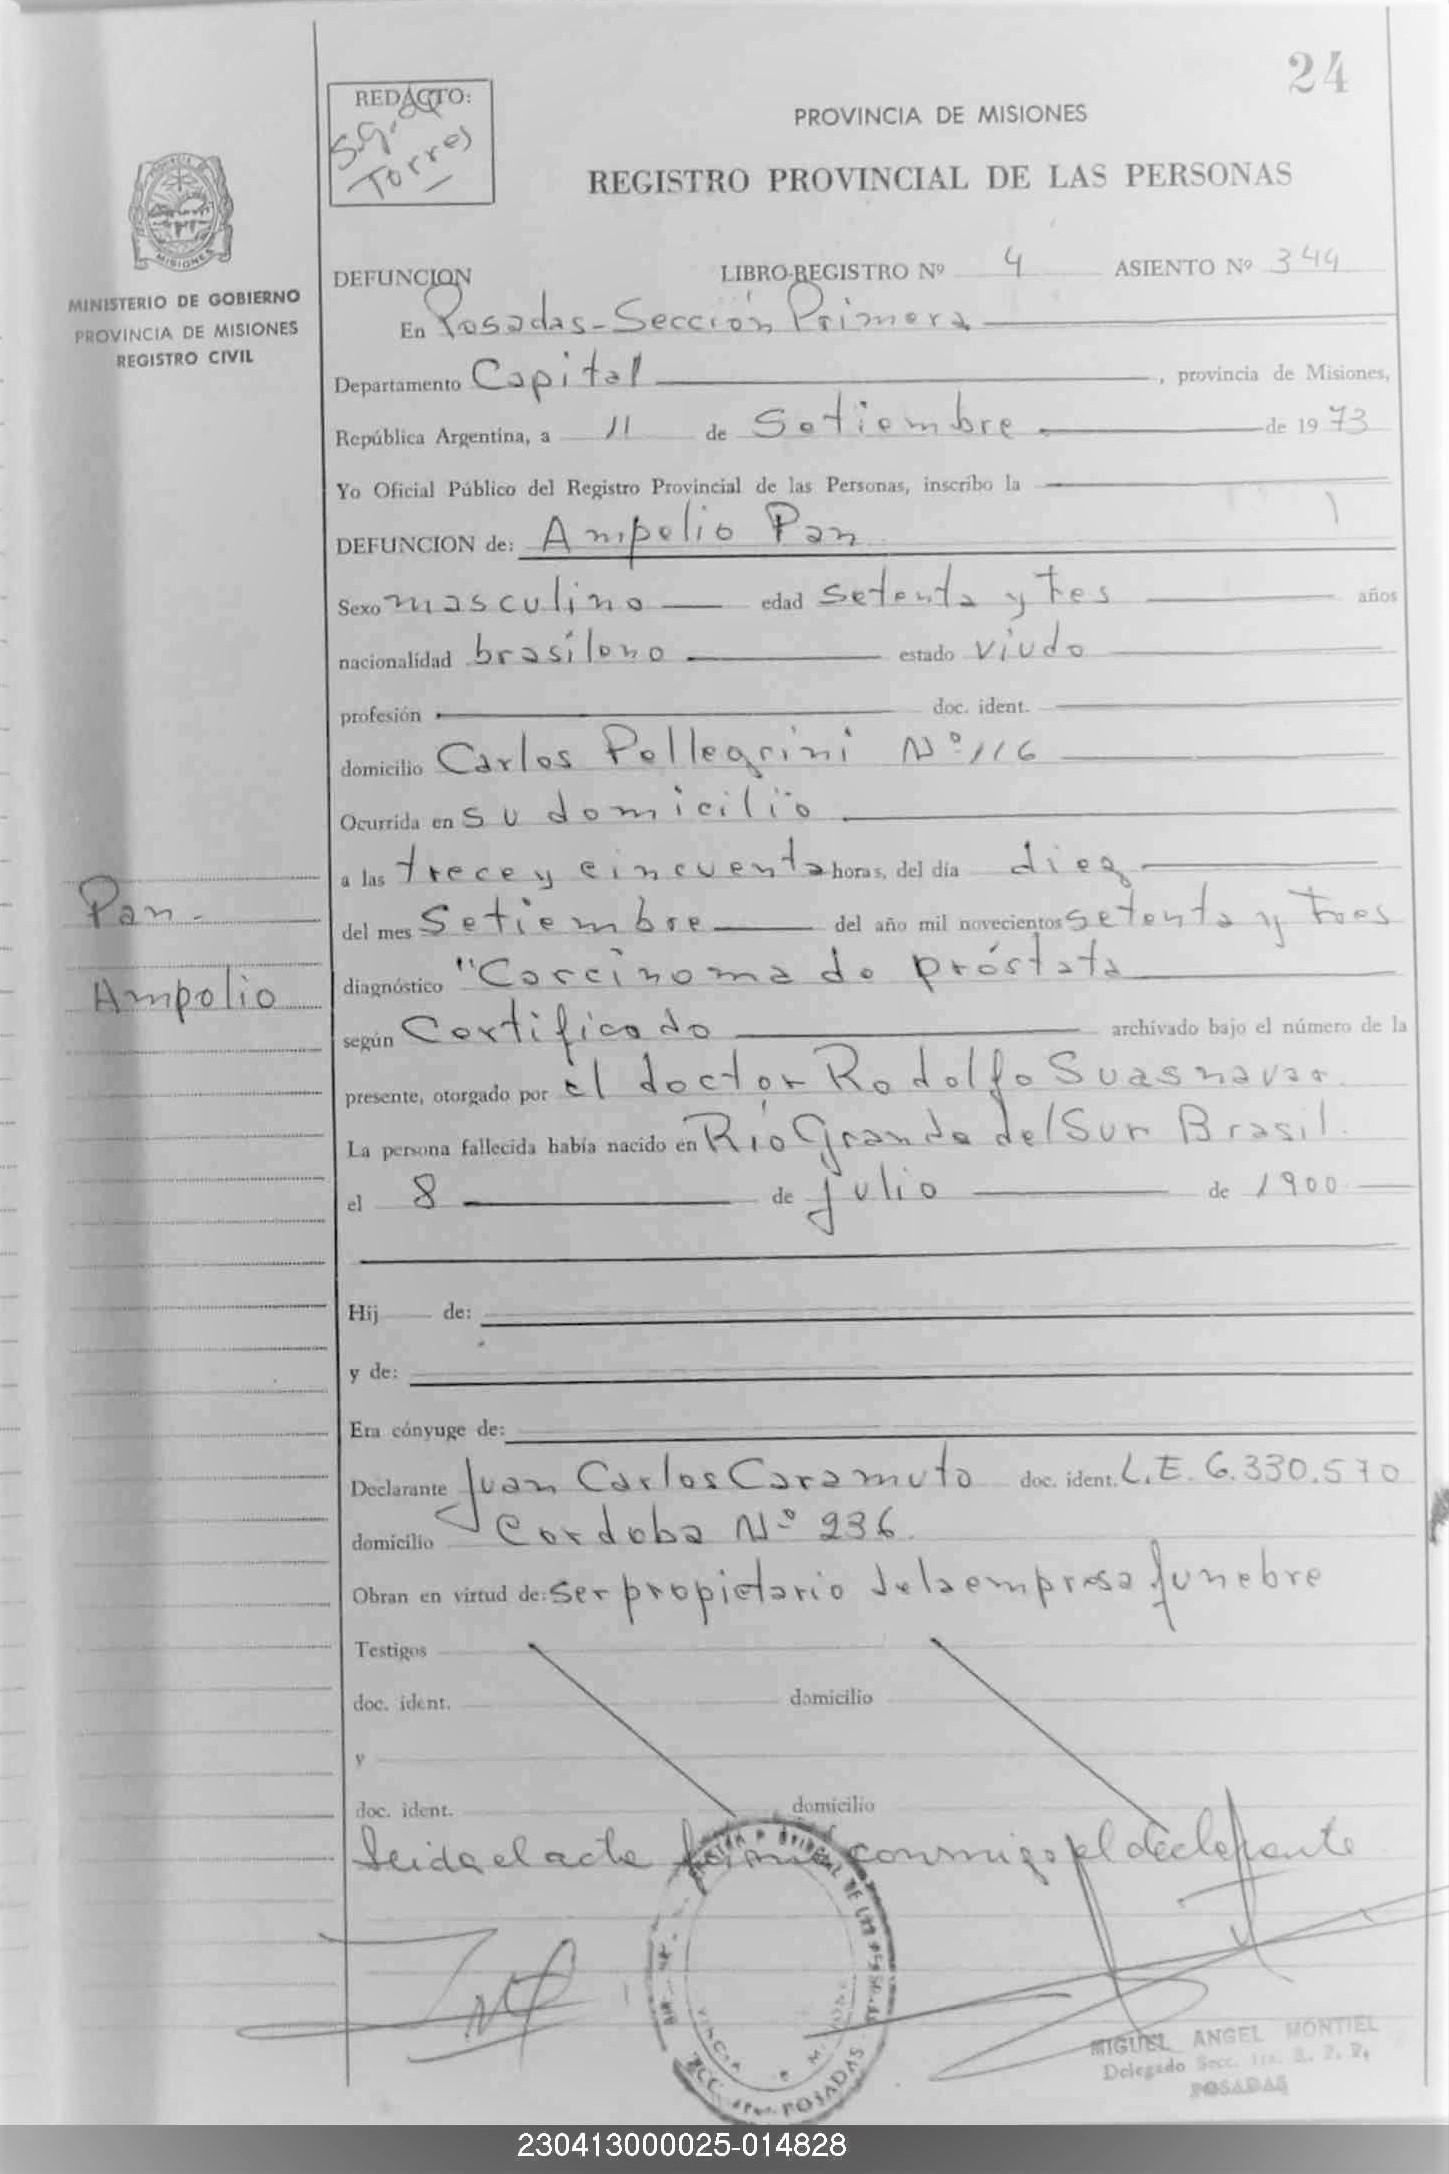 24
REDACTO:
S.G. de
Torres
PROVINCIA DE MISIONES
REGISTRO PROVINCIAL DE LAS PERSONAS
MISIONES
MINISTERIO DE GOBIERNO
PROVINCIA DE MISIONES
REGISTRO CIVIL
DEFUNCION LIBRO-REGISTRO Nº 4 ASIENTO Nº 344
En Posadas-Sección Primera
Departamento Capital, provincia de Misiones,
República Argentina, a 11 de Setiembre de 1973
Yo Oficial Público del Registro Provincial de las Personas, inscribo la
DEFUNCION de: Ampelio Pan
Sexo masculino edad setenta y tres años
nacionalidad brasileno estado viudo
profesión doc. ident.
domicilio Carlos Pellegrini Nº 116
Ocurrida en su domicilio
a las trece y cincuenta horas, del día diez
del mes Setiembre del año mil novecientos setenta y tres
Pan-
Ampolio
diagnóstico "Carcinoma de próstata
según Certificado archivado bajo el número de la
presente, otorgado por el doctor Rodolfo Suasnavar
La persona fallecida había nacido en Río Grande del Sur Brasil.
el 8 de julio de 1900
Hij de:
y de:
Era cónyuge de:
Declarante Juan Carlos Caramuto doc. ident. L.E. 6.330.570
domicilio Cordoba Nº 236.
Obran en virtud de: ser propietario de la empresa funebre
Testigos
doc. ident. domicilio
y
doc. ident. domicilio
Leida el acta firma conmigo el declarante
POSADAS
MIGUEL ANGEL MONTIEL
Delegado Secc. 1ra. R. P. P.
POSADAS
230413000025-014828